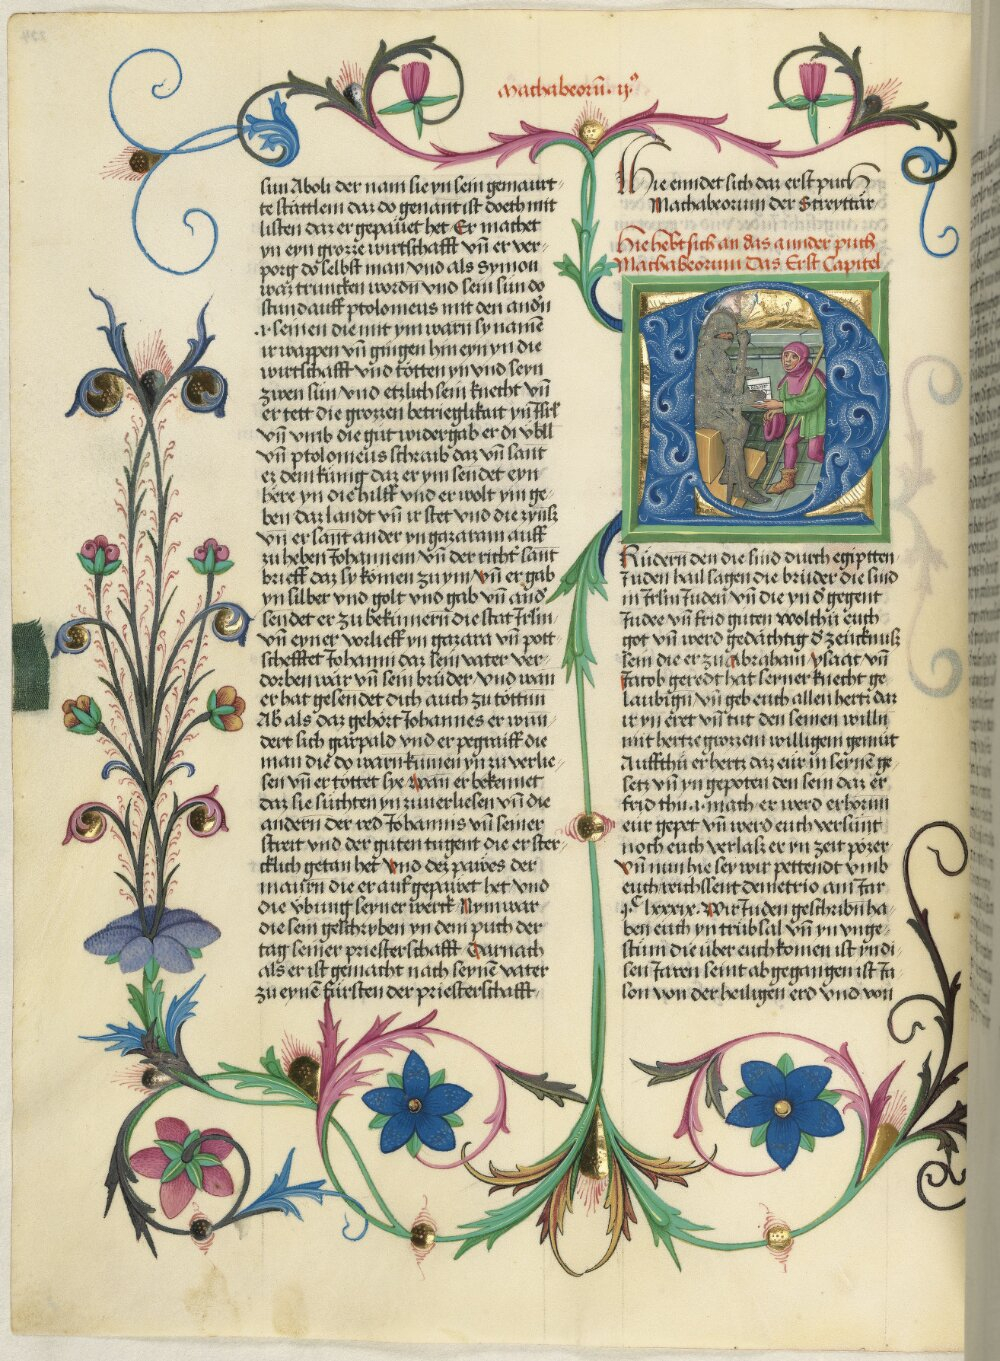 Machabeorū. ijº
sun Aboli der nam sie yn sein gemaurt-
te stättlein daz do genant ist doeth mit
listen daz er gepauet het Er machet
yn eyn grozze wirtschafft vn̄ er ver-
porg do selbst man vnd als Symon
waz truncken wordn̄ vnd sein sun do
stund auff ptolomeus mit den andn̄
seinen die mit ym warn sy namē
ir wappen vn̄ gingen hin eyn yn die
wirtschafft vnd tötten yn vnd seyn
zwen sün vnd etzlich sein knecht vn̄
er tett die grozzen betrieglikait yn Isrl
vn̄ vmb die gut widergab er di vbll
vn̄ ptolomeus schraib daz vn̄ sant
ez dem künig daz er ym sendet eyn
here yn die hilff vnd er wolt ym ge-
ben daz landt vn̄ ir stet vnd die zynsz
vn̄ er sant ander yn gazaram auff
zu heben Johannem vn̄ der richt sant
brieff daz sy kömen zu ym vn̄ er gab
yn silber vnd golt vnd gab vn̄ and̕
sendet er zu bekümern die stat Jrlm
vn̄ eyner vorlieff yn gazara vn̄ pott
schefftet Johanni daz sein vater ver-
dorben wär vn̄ sein brüder vnd wan
er hat gesendet dich auch zu töttnn
Ab als daz gehört Johannes er wun-
dert sich garpald vnd er pegraiff die
man die do warn kumen yn zu verlie-
sen vn̄ er töttet sye Wan er bekennet
daz sie suchten yn zuuerliesen vn̄ die
andern der red Johannis vn̄ seiner
streit vnd der guten tugent die er ster-
cklich getan het Vnd dez pawes der
mawrn die er auf gepawet het vnd
die vbung seyner werck Nym war
die sein geschryben yn dem puch der
tag seiner priesterschafft Darnach
als er ist gemacht nach seynē vater
zu eynē fürsten der priesterschafft
Hie enndet sich daz erst puch
Machabeorum der Streyttär
Hie hebt sich an das annder puch
Machabeorum Das Erst Capitel
Rüdern den die sind durch egiptten
Juden hail sagen die brüder die sind
in Jrlm Juden vn̄ die yn d̕ gegent
Judee vn̄ frid guten wolthu euch
got vn̄ werd gedächtig d̕ zeucknusz
sein die er zu Abraham ysaac vn̄
Jacob geredt hat seyner knecht ge-
laubign̄ vn̄ geb euch allen hertz daz
ir yn eret vn̄ tut den seinen willn̄
mit hertze grozzem willigem gemüt
Auffthü er hertz daz eur in seynē ge-
setz vn̄ yn gepoten den sein daz er
frid thu a mach er werd erhörnn
eür gepet vn̄ werd euch versünt
noch euch verlasz er yn zeit pözer
vn̄ nun hie sey wir pettendt vmb
euch reichssent demetrio am Jar
cº lxxxix. Wir Juden geschribn̄ ha-
ben euch yn trübsal vn̄ yn vnge-
stüm die über euch komen ist yn di-
sen Jaren seint abgegangen ist Ja-
son von der heiligen erd vnd von